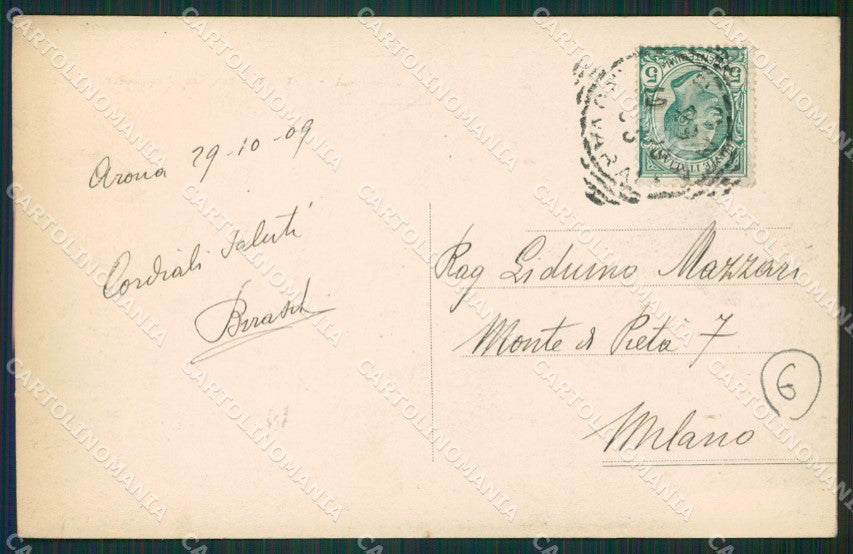 Arona 29-10-09
Cordiali saluti
Rag Liduino Mazzari
Monte di Pietà 7
Milano
6
5 5
CARTOLINOMANIA